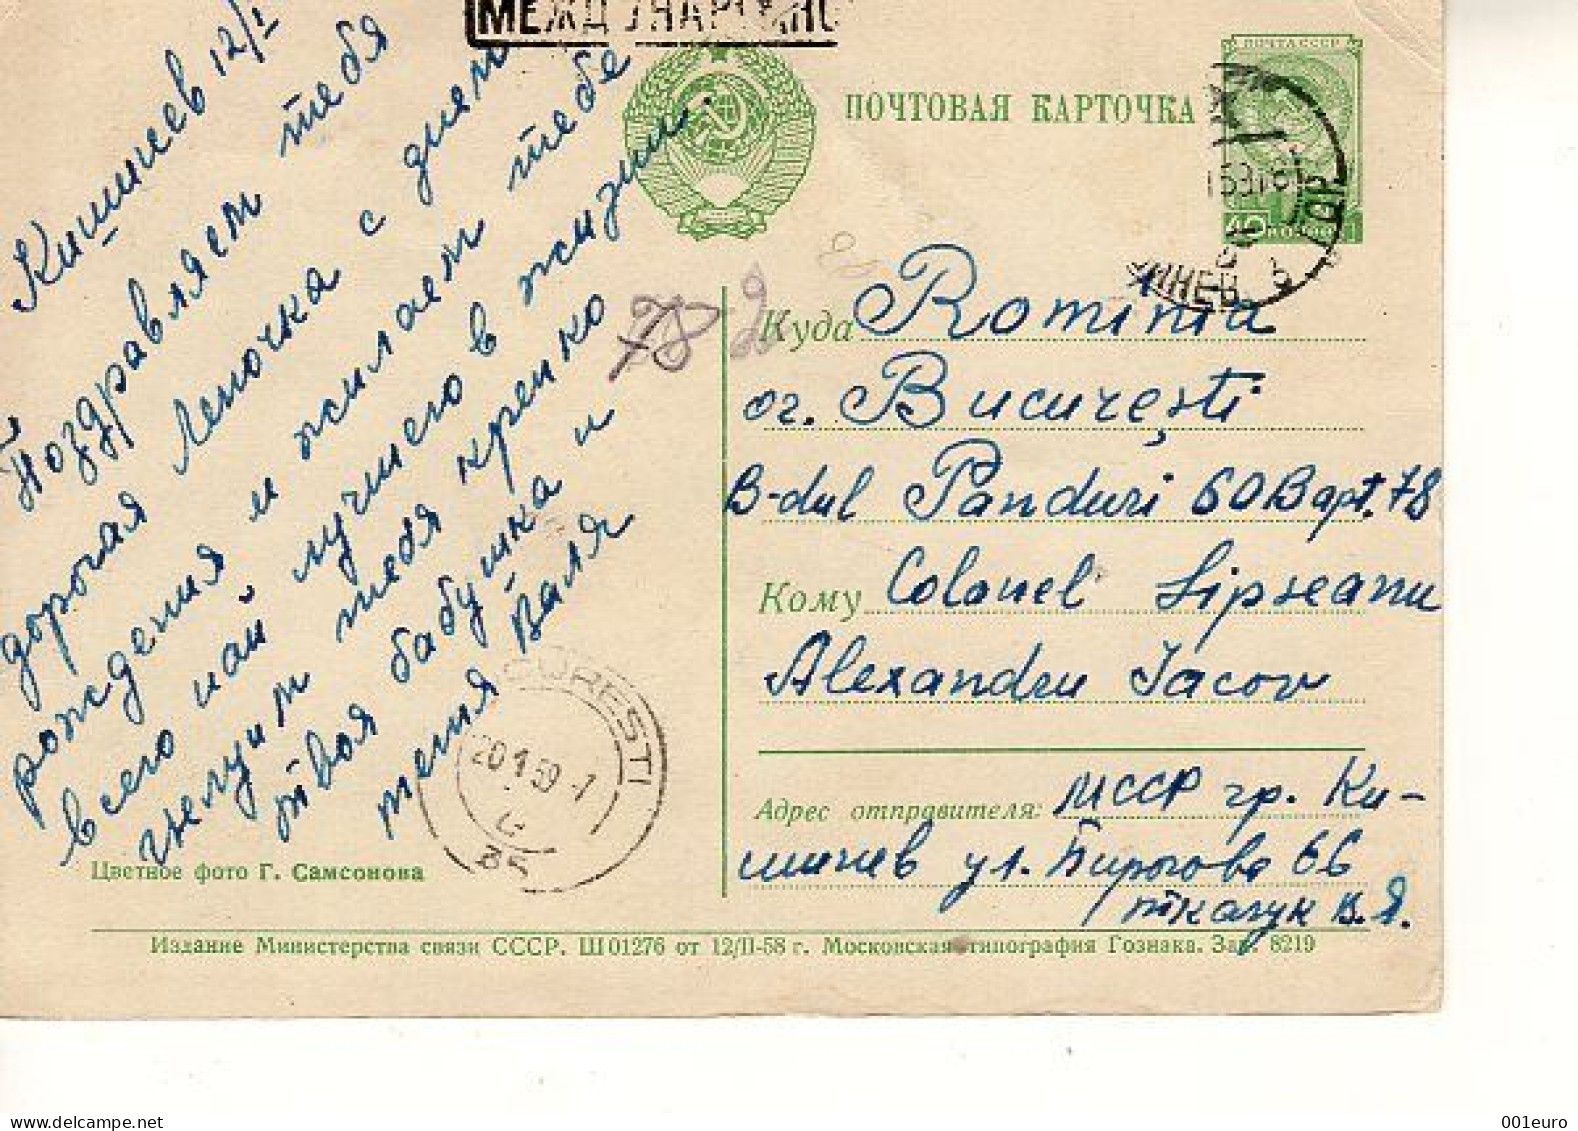 МЕЖДУНАРОДНО
ПОЧТА СССР
ПОЧТОВАЯ КАРТОЧКА
Кишинев 12/I
Поздравляем тебя
дорогая Леночка с днем
рождения и жилаем тебе
всего най лучшего в жизни.
целуим тебя крепко
твоя бабушка и
тетя Валя
78-2
Куда Rominia
ог. București
B-dul Panduri 60B apt. 78
Кому Colonel Lipseanu
Alexandru Iacov
Адрес отправителя: МССР гр. Ки-
шинев ул. Пирогова 66
Ткачук В. Я.
20 1 59
Цветное фото Г. Самсонова
Издание Министерства связи СССР. Ш 01276 от 12/II-58 г. Московская типография Гознака. Зак. 8219
www.delcampe.net
001euro